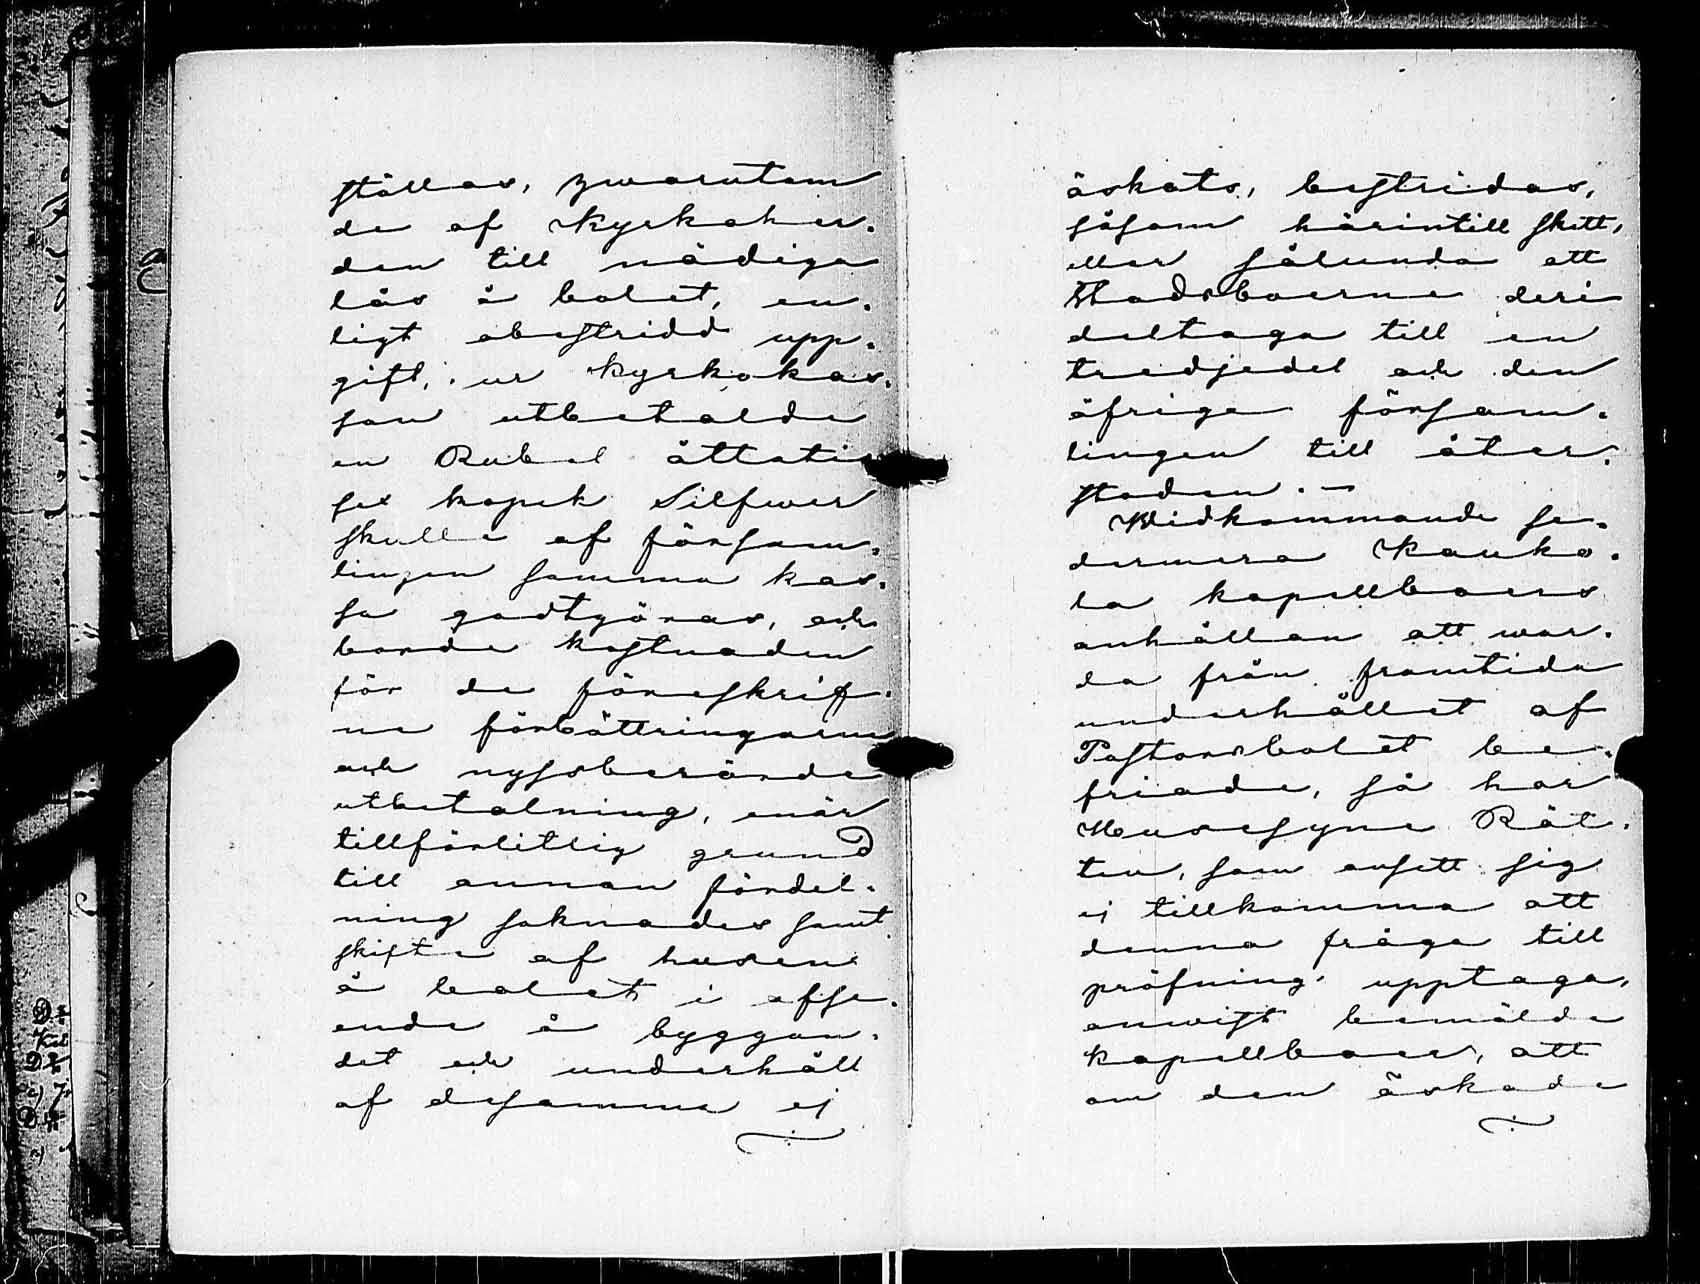 ställas, hwarutom
de af Kyrkoher-
den till nödiga
lås å bolet, en-
ligt obestridd upp-
gift, ur Kyrkokas-
san utbetalde
en Rubel åttatio
sex kopek Silfwer
skulle af försam-
lingen samma kas-
sa godtgöras, och
borde kostnaden
för de föreskrif-
ne förbättringarne
och nyssberörde
utbetalning, enär
tillförlitlig grund
till annan fördel-
ning saknades samt
skifte af husen
å bolet i afse-
ende å byggan-
det och underhåll
af desamma ej
äskats, bestridas,
såsom härintill skett,
eller sålunda att
Stadsboerne deri
deltaga till en
tredjedel och den
öfriga försam-
lingen till åter-
stoden. —
Widkommande se-
dermera Kauko-
la kapellboers
anhållan att war-
da från framtida
underhållet af
Pastorsbolet be-
friade, så har
Husesyne Rät-
ten, som ansett sig
ej tillkomma att
denna fråga till
pröfning upptaga,
anwist bemälde
kapellboer, att
om den äskade